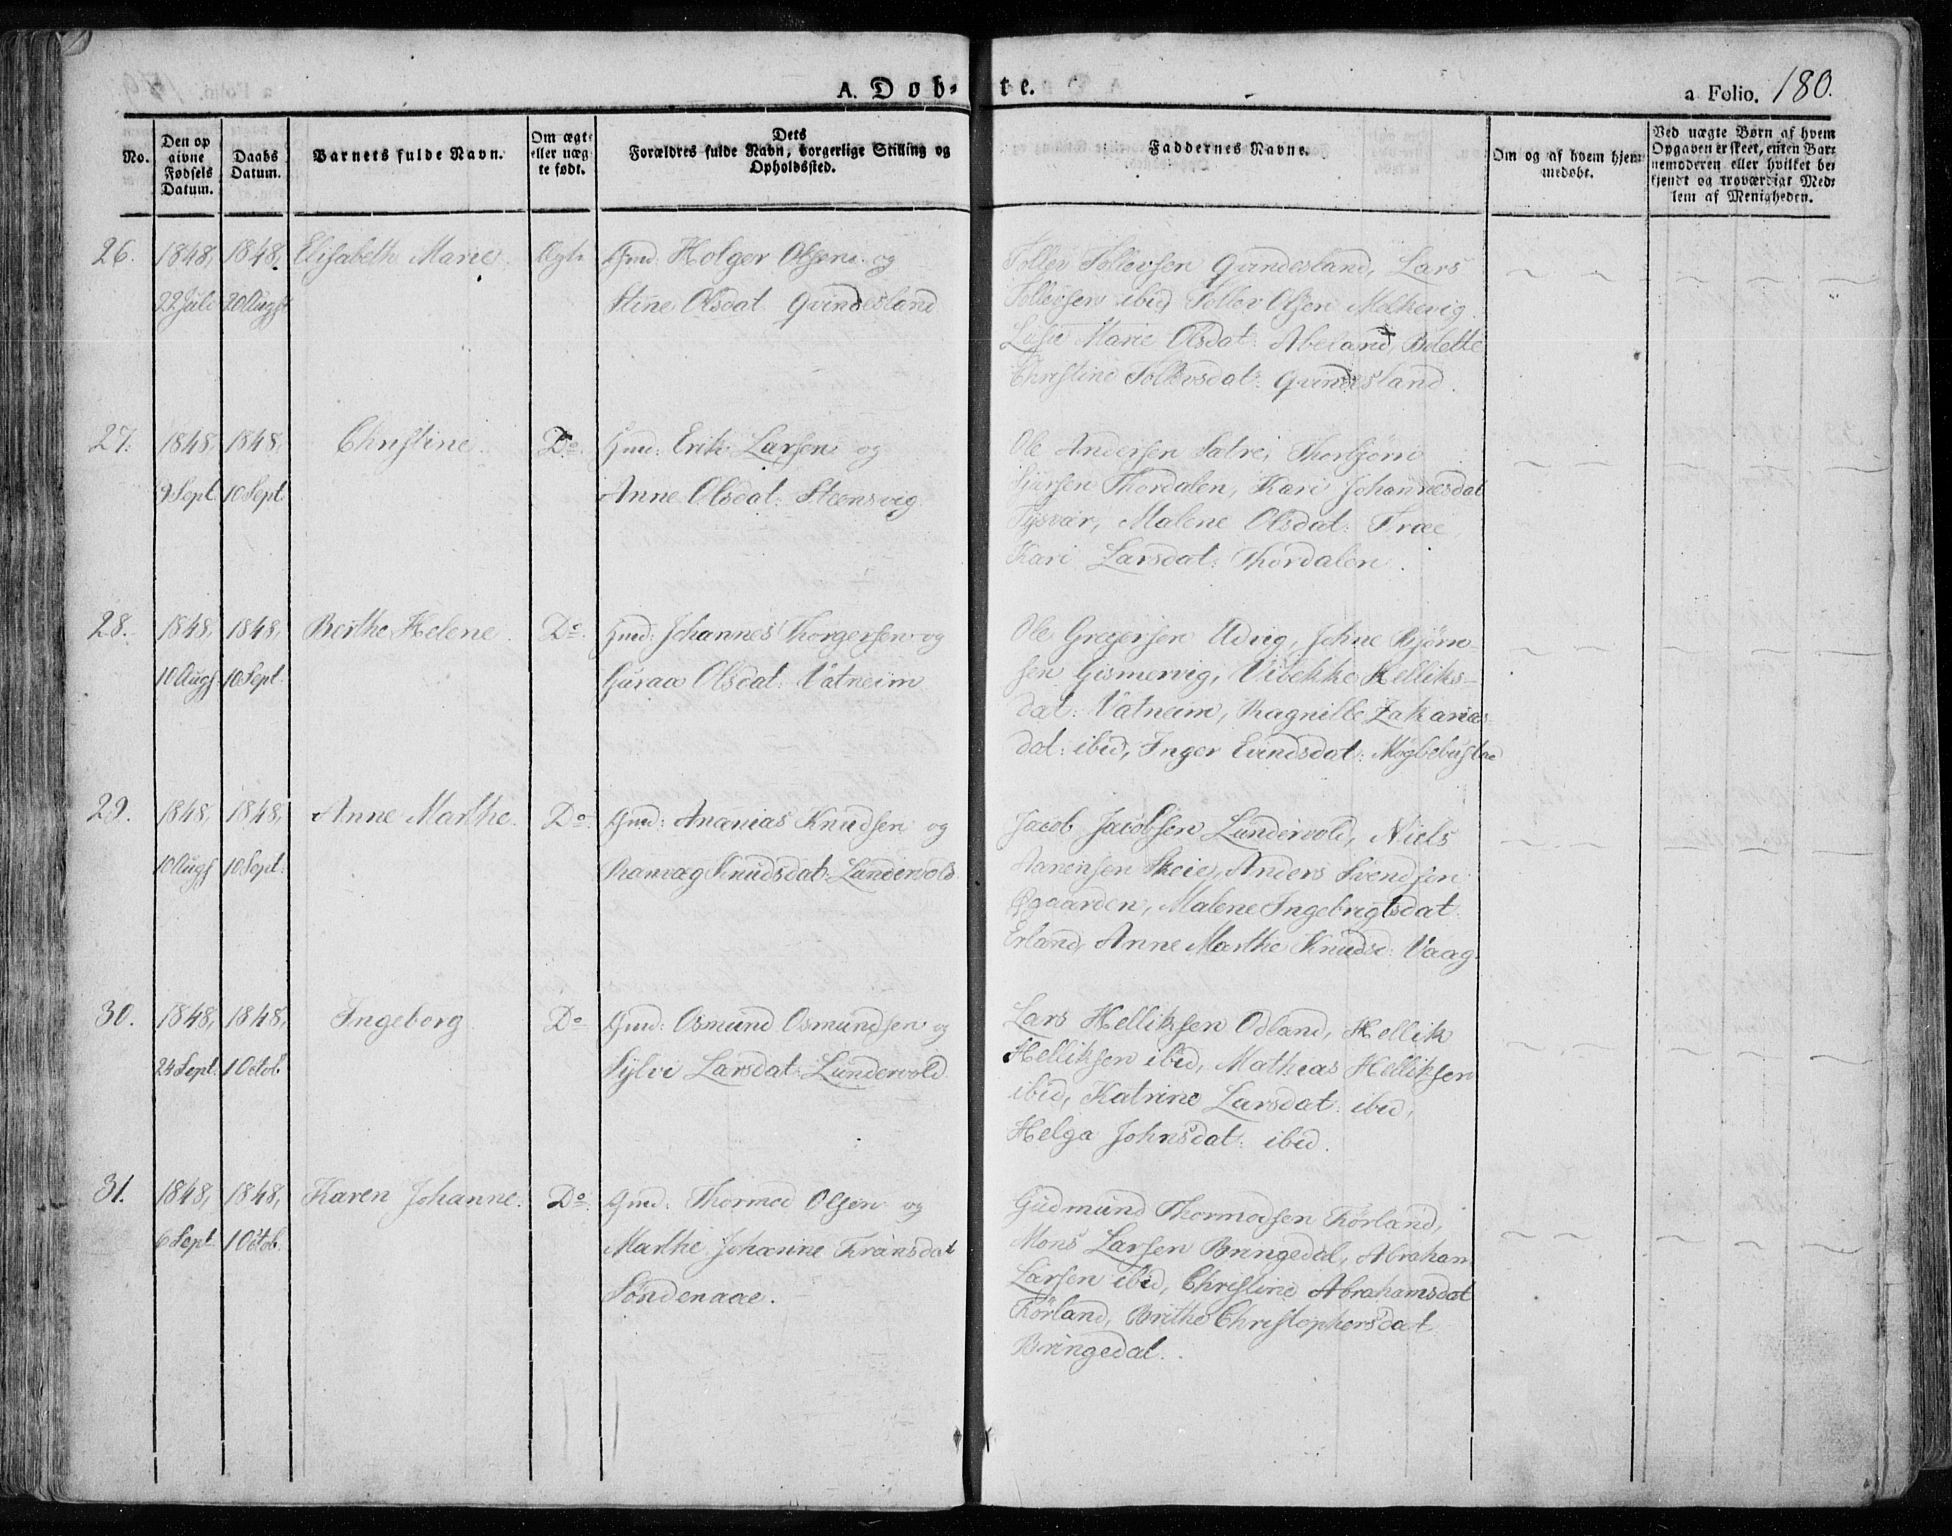 A. Døb- te.
a Folio. 180.
No.
Den op
givne
Fødsels
Datum.
Daabs
Datum.
Barnets fulde Navn.
Om ægte
eller uæg
te født.
Dets
Forældres fulde Navn, borgerlige Stilling og
Opholdssted.
Faddernes Navne.
Om og af hvem hjem
medøbt.
Ved uægte Børn af hvem
Opgaven er skeet, enten Bar-
nemoderen eller hvilket be-
kjendt og troværdigt Med-
lem af Menigheden.
26. 1848, 1848, Elisabeth Marie. Ægte Gmd. Holger Olsen og
22 Juli 20 Augst Stine Olsdat. Qvindesland
Tollev Tollevsen Qvindesland, Lars
Tollevsen ibid, Tollev Olsen Melkevig.
Marie Olsdat: Abeland, Bolette
Christine Tollevsdat: Qvindesland.
27. 1848, 1848, Christine. Do. Gmd: Erik Larsen og
9 Sept. 10 Sept. Anne Olsdat: Steensvig
Ole Andersen Sætre, Thorbjørn
Sjursen Thordalen, Kari Johannesdat
Tysvær, Malene Olsdat: Træe,
Kari Larsdat: Thordalen.
28. 1848, 1848, Berthe Helene. Do. Gmd: Johannes Thorgersen og
10 Augs 10 Sept. Guraa Olsdat: Vatneim
Ole Gregersen Udvig, Johne Bjørn-
sen Gismervig, Vibekke Helliks-
dat: Vatneim, Ragnille Zakarias
dat: ibid, Inger Evindsdat:
29. 1848, 1848, Anne Marthe. Do. Gmd: Ananias Knudsen og
10 Augs 10 Sept. Ranvæg Knudsdat: Lundervold
Jacob Jacobsen Lundervold, Niels
Aanensen Skeie, Anders Svendsen
Øgaarden, Malene Ingebrigtsdat.
Erland, Anne Marthe Knudsd: Vaag.
30. 1848, 1848, Ingeborg Do. Gmd: Osmund Osmundsen og
24 Sept. 1 Octob. Sylvi Larsdat: Lundervold.
Lars Helliksen Odland, Hellik
Helliksen ibid, Mathias Helliksen
ibid, Katrine Larsdat: ibid,
Helga Johnsdat: ibid.
31. 1848, 1848, Karen Johanne. Do. Gmd: Thormod Olsen og
6 Sept. 1 Octob. Marthe Johanne Fransdat
Søndenaae.
Gudmund Thormodsen Førland,
Mons Larsen Bringedal, Abraham
Larsen ibid, Christine Abrahamsdat
Førland, Brithe Christophersdat
Bringedal.